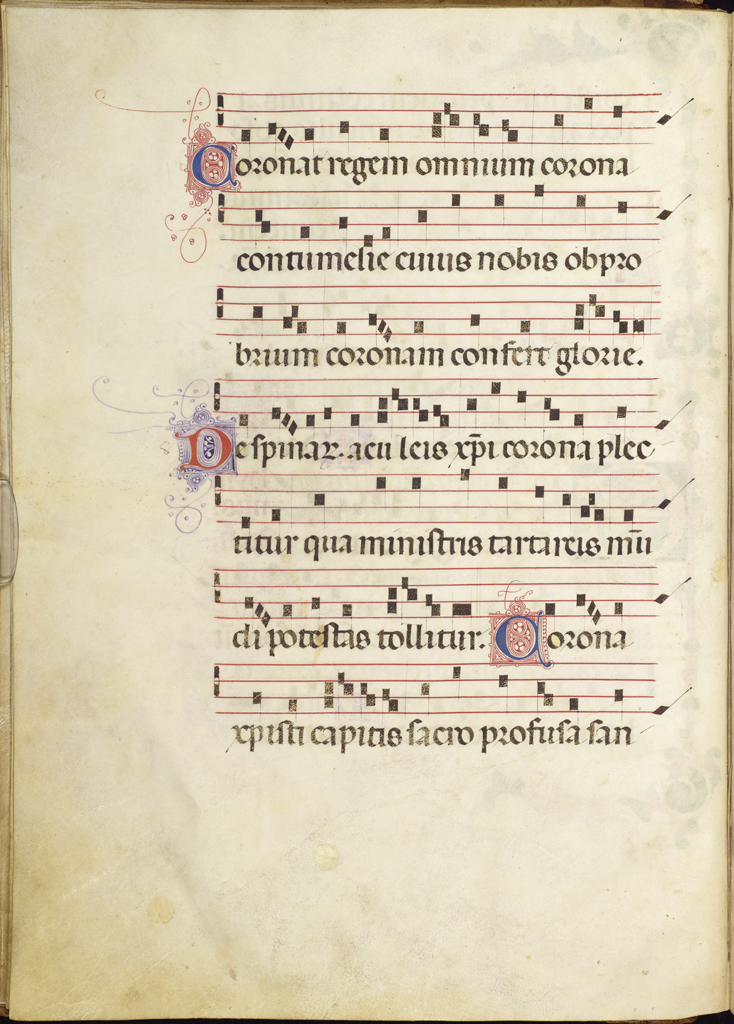 Coronat regem omnium corona
contumelie cuius nobis obpro
brium coronam confert glorie.
De spinaꝝ aculeis xp̄i corona plec
titur qua ministris tartareis mū
di potestas tollitur. Corona
xpisti capitis sacro profusa san